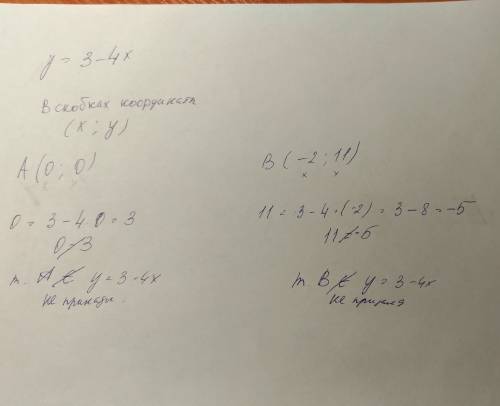 y = 3 - 4x
В скобках координаты
(x ; y)
A (0 ; 0)
x
0 = 3 - 4 · 0 = 3
0 ≠ 3
т. A ∉ y = 3 - 4x
не принадл.
B (-2 ; 11)
x x
11 = 3 - 4 · (-2) = 3 - 8 = -5
11 ≠ -5
т B ∉ y = 3 - 4x
не